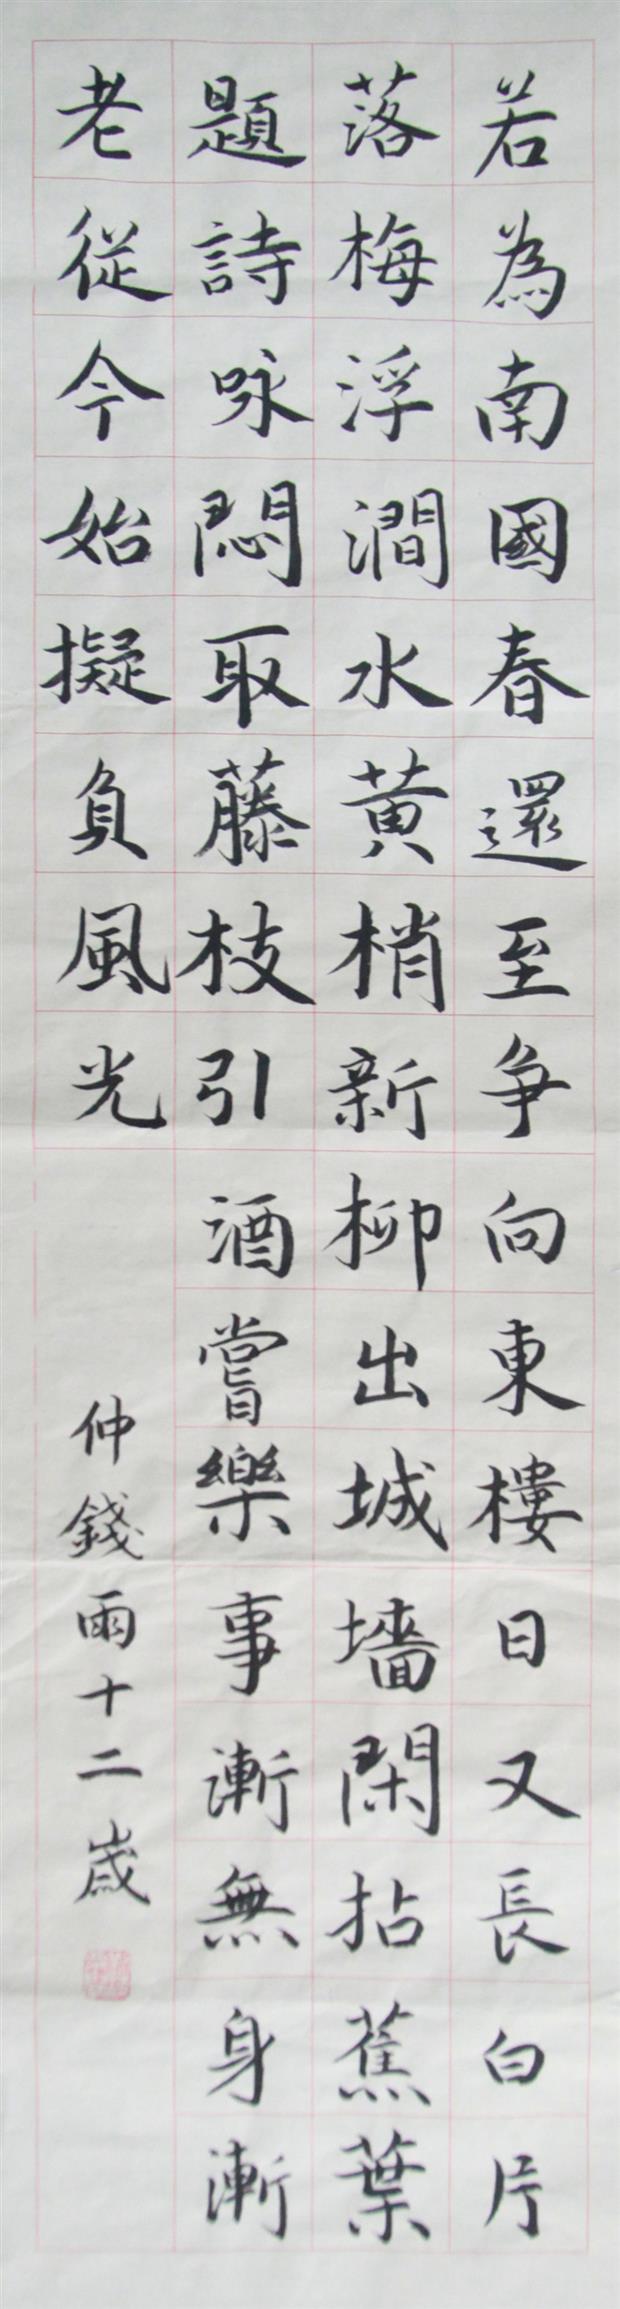 若為南國春還至爭向東樓日又長白片
落梅浮澗水黄梢新柳出城墻閑拈蕉葉
題詩咏悶取藤枝引酒嘗樂事漸無身漸
老從今始擬負風光
仲錢雨十二歲